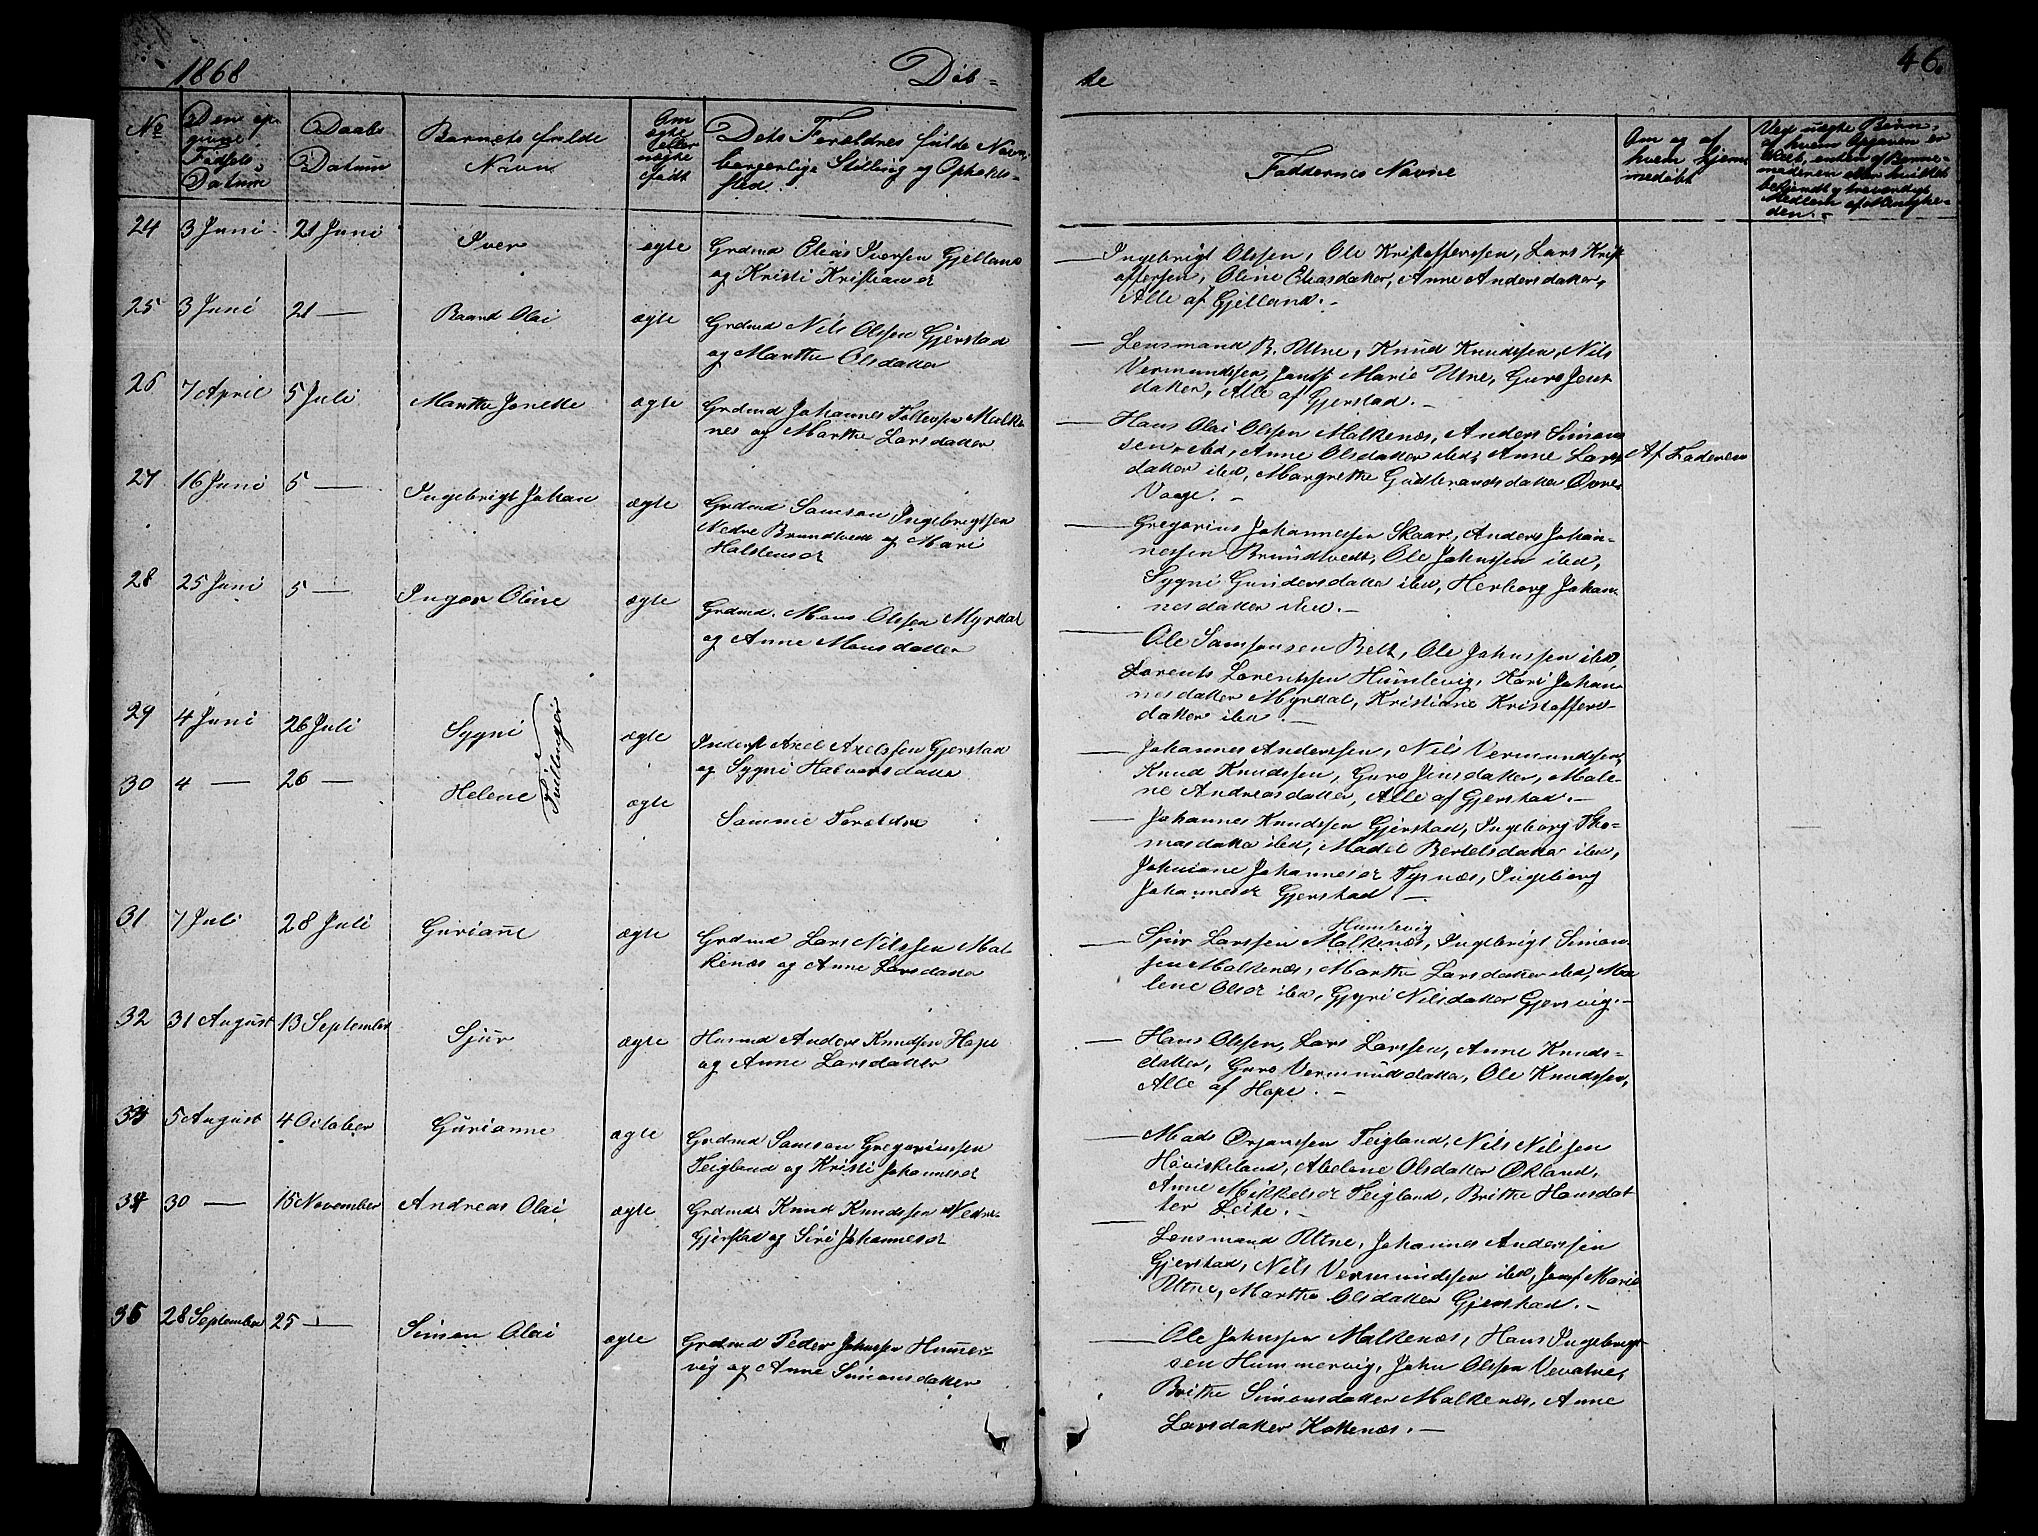 1868 Døb- te 46.
No
Den op-
givne
Fødsels-
Datum
Daabs
Datum
Barnets fulde
Navn
Om
ægte
eller
uægte
født
Dets Forældres fulde Navn,
borgerlige Stilling og Opholds-
sted.
Faddernes Navne
Om og af
hvem hjem-
medøbt
Ved uægte Børn,
af hvem Opgaven er
skeet, enten af Barne-
moderen eller hvilket
bekjendt og troværdigt
Medlem af Menighe-
den.-
24 3 Juni 21 Juni Iver ægte
Grdmd Elias Iversen Gjelland
og Kristi Kristiansd
Ingebrigt Olssen, Ole Kristofferssen, Lars Krist
offersen, Oline Eliasdatter, Anne Andersdatter,
Alle af Gjelland.-
25 3 Juni 21 — Baard Olai ægte
Grdmd Nils Olssen Gjerstad
og Marthe Olsdatter
Lensmand B. Utne, Knud Knudssen, Nils
Vermundssen, Jomf Marie Utne, Guro Jens
datter, Alle af Gjerstad.-
26 7 April 5 Juli Marthe Jonette ægte
Grdmd Johannes Tollevsen Malke
nes og Marthe Larsdatter
Hans Olai Olssen Malkenæs, Anders Simon
sen ibd, Anne Olsdatter ibd, Anne Lars
datter ibd, Margrethe Gudbrandsdatter Øvre
Vaage.-
Af Faderen
27 16 Juni 5 — Ingebrigt Johan ægte
Grdmd Samson Ingebrigtsen
Nedre Brundtvedt og Mari
Halstensd
Gregorius Johannessen Skaar, Anders Johan-
nessen Brundtvedt, Ole Johnssen ibd,
Sygni Gundersdatter ibd, Herborg Johan
nesdatter ibd.-
28 25 Juni 5 — Inger Oline ægte
Grdmd. Mons Olssen Myrdal
og Anne Monsdatter
Ole Samsonsen Belt, Ole Johnssen ibd,
Lorents Lorentssen Humlevig, Kari Johan
nesdatter Myrdal, Kristiane Kristoffers
datter ibd.-
29 4 Juni 26 Juli Sygni ægte
Tvillinger
Inderst Axel Axelssen Gjerstad
og Sygni Halvorsdatter
Johannes Anderssen, Nils Vermundssen,
Knud Knudssen, Guro Jensdatter, Male-
ne Andreasdatter, Alle af Gjerstad.-
30 4 — 26 — Helene ægte
Samme Forældre
Johannes Knudssen Gjerstad, Ingeborg Tho-
masdatter ibd, Madel Bertelsdatter ibd,
Johniane Johannesd Tysnæs, Ingeborg
Johannesd Gjerstad —
31 7 Juli 28 Juli Guriane ægte
Grdmd Lars Nilssen Mal
kenæs og Anne Larsdatter
Humlevig
Sjur Larssen Malkenæs, Ingebrigt Simon
sen Malkenæs, Marthe Larsdatter ibd, Ma
lene Olsd ibd, Gjyri Nilsdatter Gjersvig.-
32 31 August 13 September Sjur ægte
Husmd Anders Knudsen Hope
og Anne Larsdatter
Hans Olssen, Lars Larssen, Anne Knuds-
datter, Guro Vermunddatter, Ole Knudssen,
Alle af Hope.-
33 5 August 4 October Gurianne ægte
Grdmd Samson Gregoriussen
Teigland og Kristi Johannesd
Mads Ørjanssen Teigland, Nils Nilsen
Hoviskeland, Abelene Olsdatter Økland,
Anne Mikkelsd Teigland, Brithe Hansdat
ter Leite.-
34 30 — 15 November Andreas Olai ægte
Grdmd Knud Knudssen Nedre
Gjerstad og Siri Johannesd
Lensmand Utne, Johannes Anderssen
Gjerstad, Nils Vermundssen ibd, Jomf Marie
Utne, Marthe Olsdatter Gjerstad.-
35 28 September 25 — Simon Olai ægte
Grdmd Peder Johnssen Hummer-
vig og Anne Simonsdatter
Ole Johnssen Malkenæs, Hans Ingebrigt
sen Hummervig, John Olssen Vevatne,
Brithe Simonsdatter Malkenæs, Anne
Larsdatter Kalkenæs.-